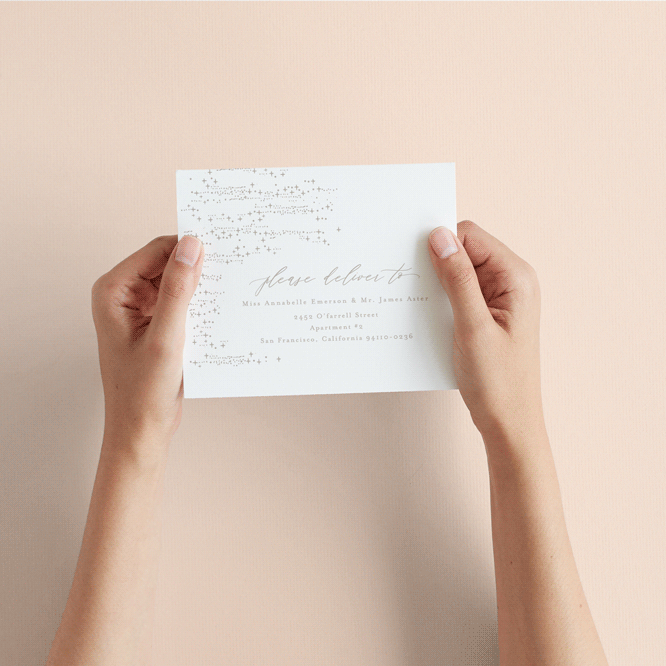 please deliver to
Miss Annabelle Emerson & Mr. James Aster
2452 O'farrell Street
Apartment #2
San Francisco, California 94110-0236